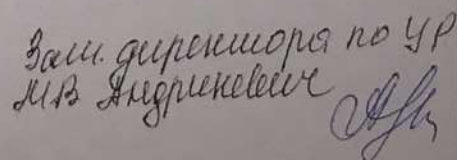 Зам. директора по УР
М.В Андрикевич